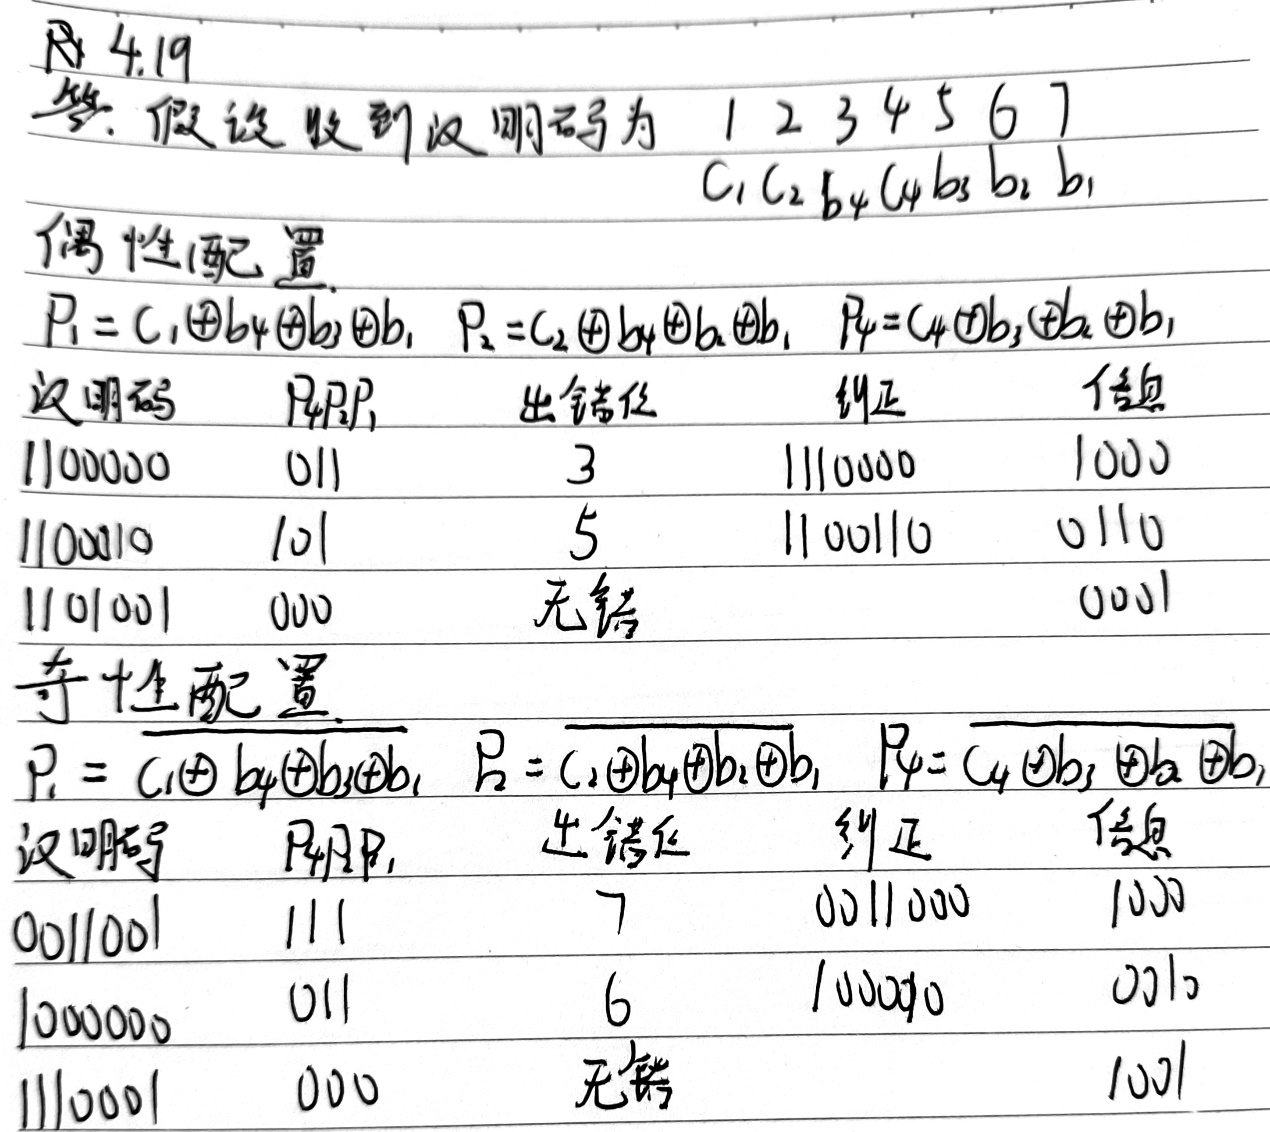 4.19
答: 假设收到汉明码为 1 2 3 4 5 6 7
C₁ C₂ b₄ C₄ b₃ b₂ b₁
偶性配置.
P₁ = C₁⊕b₄⊕b₃⊕b₁ P₂ = C₂⊕b₄⊕b₂⊕b₁ P₄ = C₄⊕b₃⊕b₂⊕b₁
汉明码 P₄P₂P₁ 出错位 纠正 信息
1100000 011 3 1110000 1000
1100010 101 5 1100110 0110
1101001 000 无错 0001
奇性配置.
P₁ = C₁⊕b₄⊕b₃⊕b₁ P₂ = C₂⊕b₄⊕b₂⊕b₁ P₄ = C₄⊕b₃⊕b₂⊕b₁
汉明码 P₄P₂P₁ 出错位 纠正 信息
0011001 111 7 0011000 1000
1000000 011 6 1000010 0010
1110001 000 无错 1001